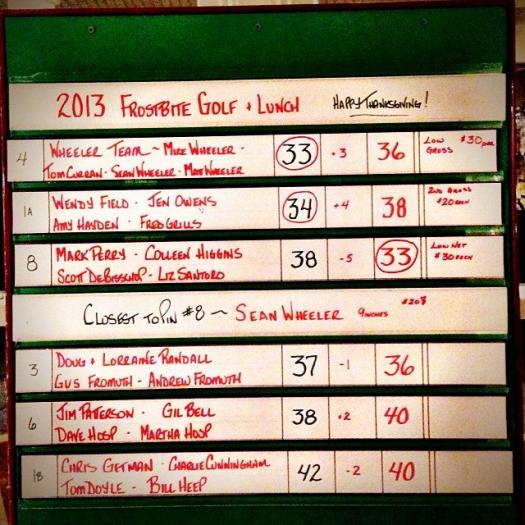 2013 FROSTBITE GOLF + LUNCH HAPPY THANKSGIVING!
4 WHEELER TEAM ~ MIKE WHEELER · 33 +3 36 LOW GROSS $30 per
TOM CURRAN · SEAN WHEELER · MATT WHEELER
1A WENDY FIELD · JEN OWENS 34 +4 38 2ND GROSS $20 EACH
AMY HAYDEN · FRED GRILLS
8 MARK PERRY · COLLEEN HIGGINS 38 -5 33 LOW NET $30 EACH
SCOTT DEBISSCHOP · LIZ SANTORO
CLOSEST TO PIN #8 ~ SEAN WHEELER 9 INCHES $20
3 DOUG + LORRAINE RANDALL 37 -1 36
GUS FROMUTH · ANDREW FROMUTH
6 JIM PATTERSON · GIL BELL 38 +2 40
DAVE HOSP · MARTHA HOSP
1B CHRIS GETMAN · CHARLIE CUNNINGHAM 42 -2 40
TOM DOYLE · BILL HEEP